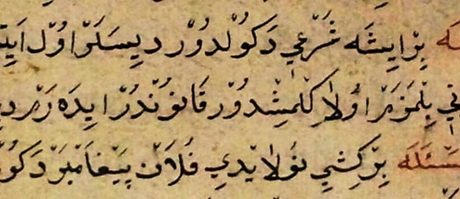 له بر ایشه شرعي دكولدور دیسلر اول
نی بلمزمز اولار كلمشدور قانوندر ایده رز
مسئله بر كشی بولایدی فلان پیغامبر دكو